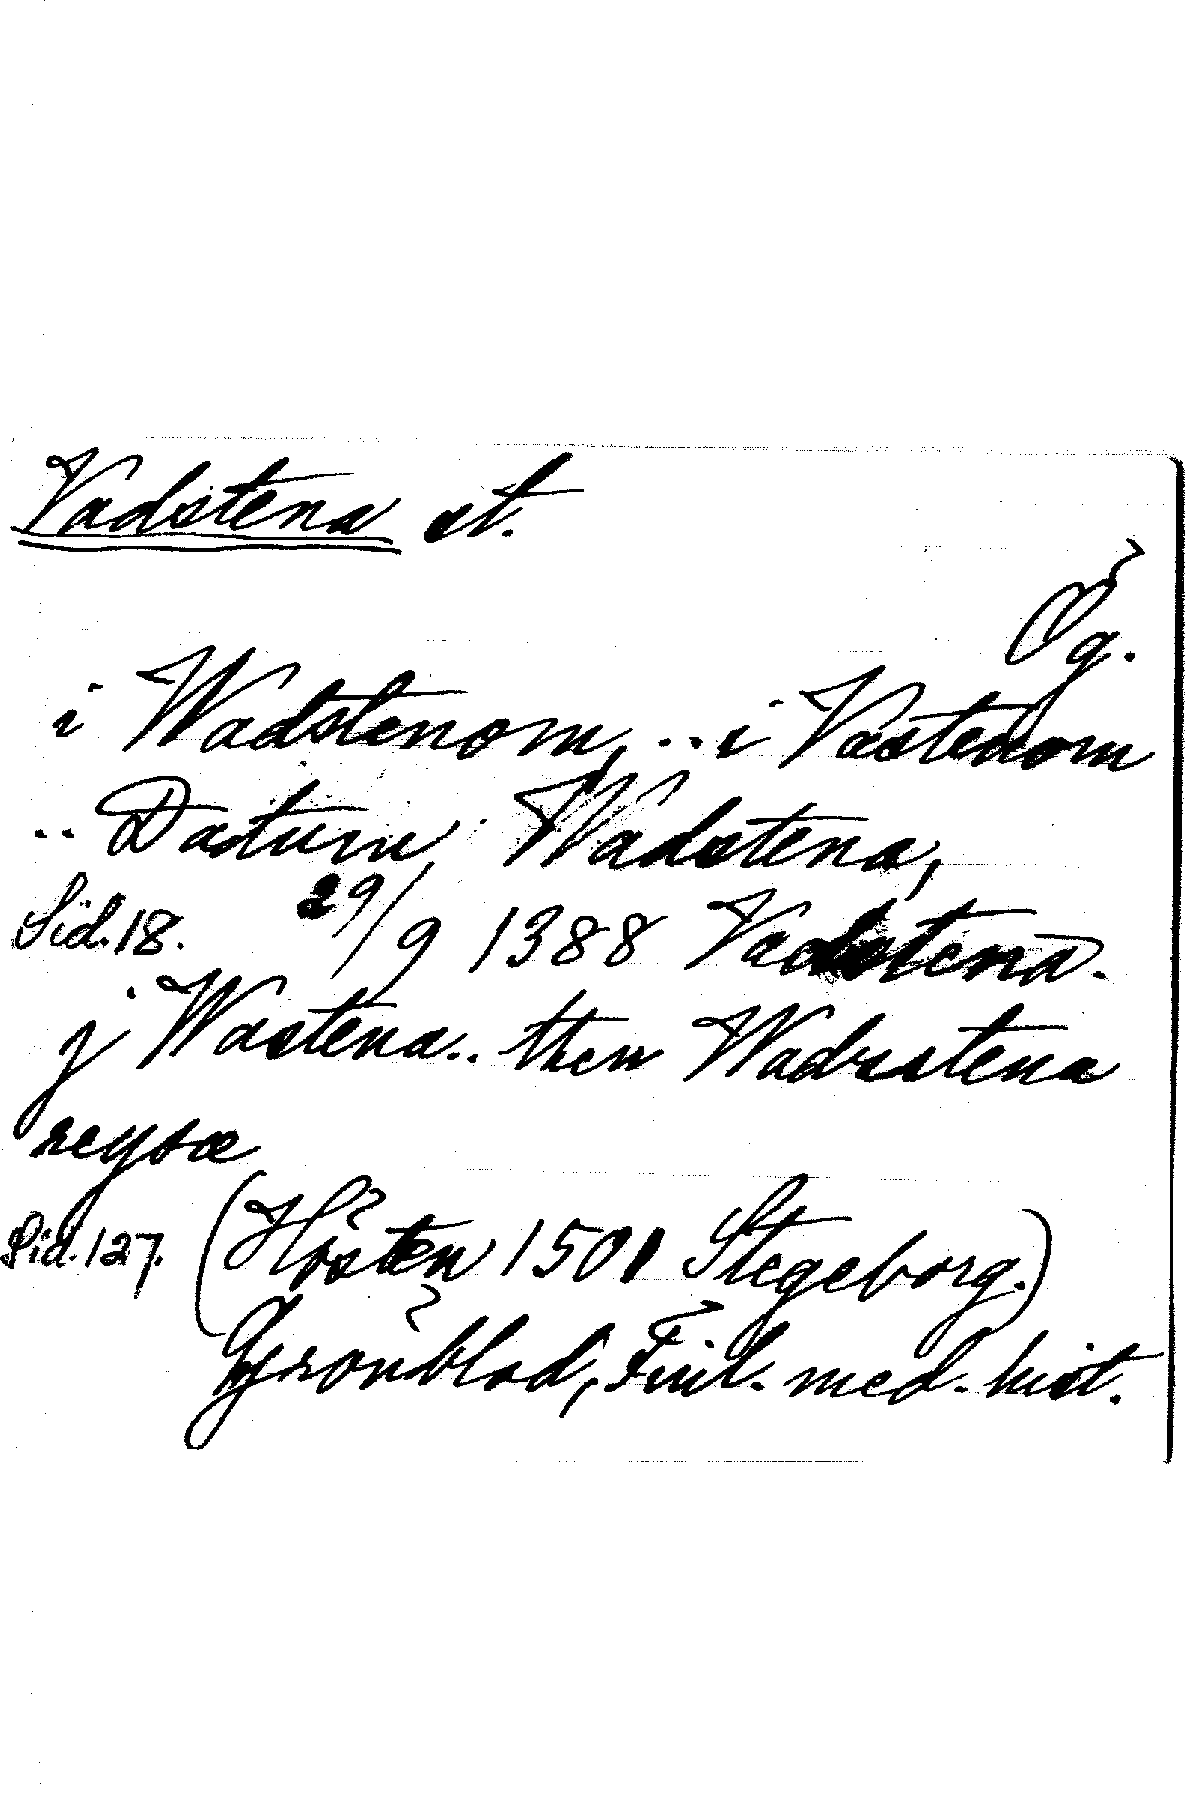 Vadstena st.
Ög.
i Wadstenom, .. i Vastenom
.. Datum Wadstena,
Sid. 18. 29/9 1388 Vadstena.
j Wastena.. then Wadzstena
reysæ
Sid. 127. (Hösten 1501 Stegeborg.)
Grönblad, Finl. med. hist.